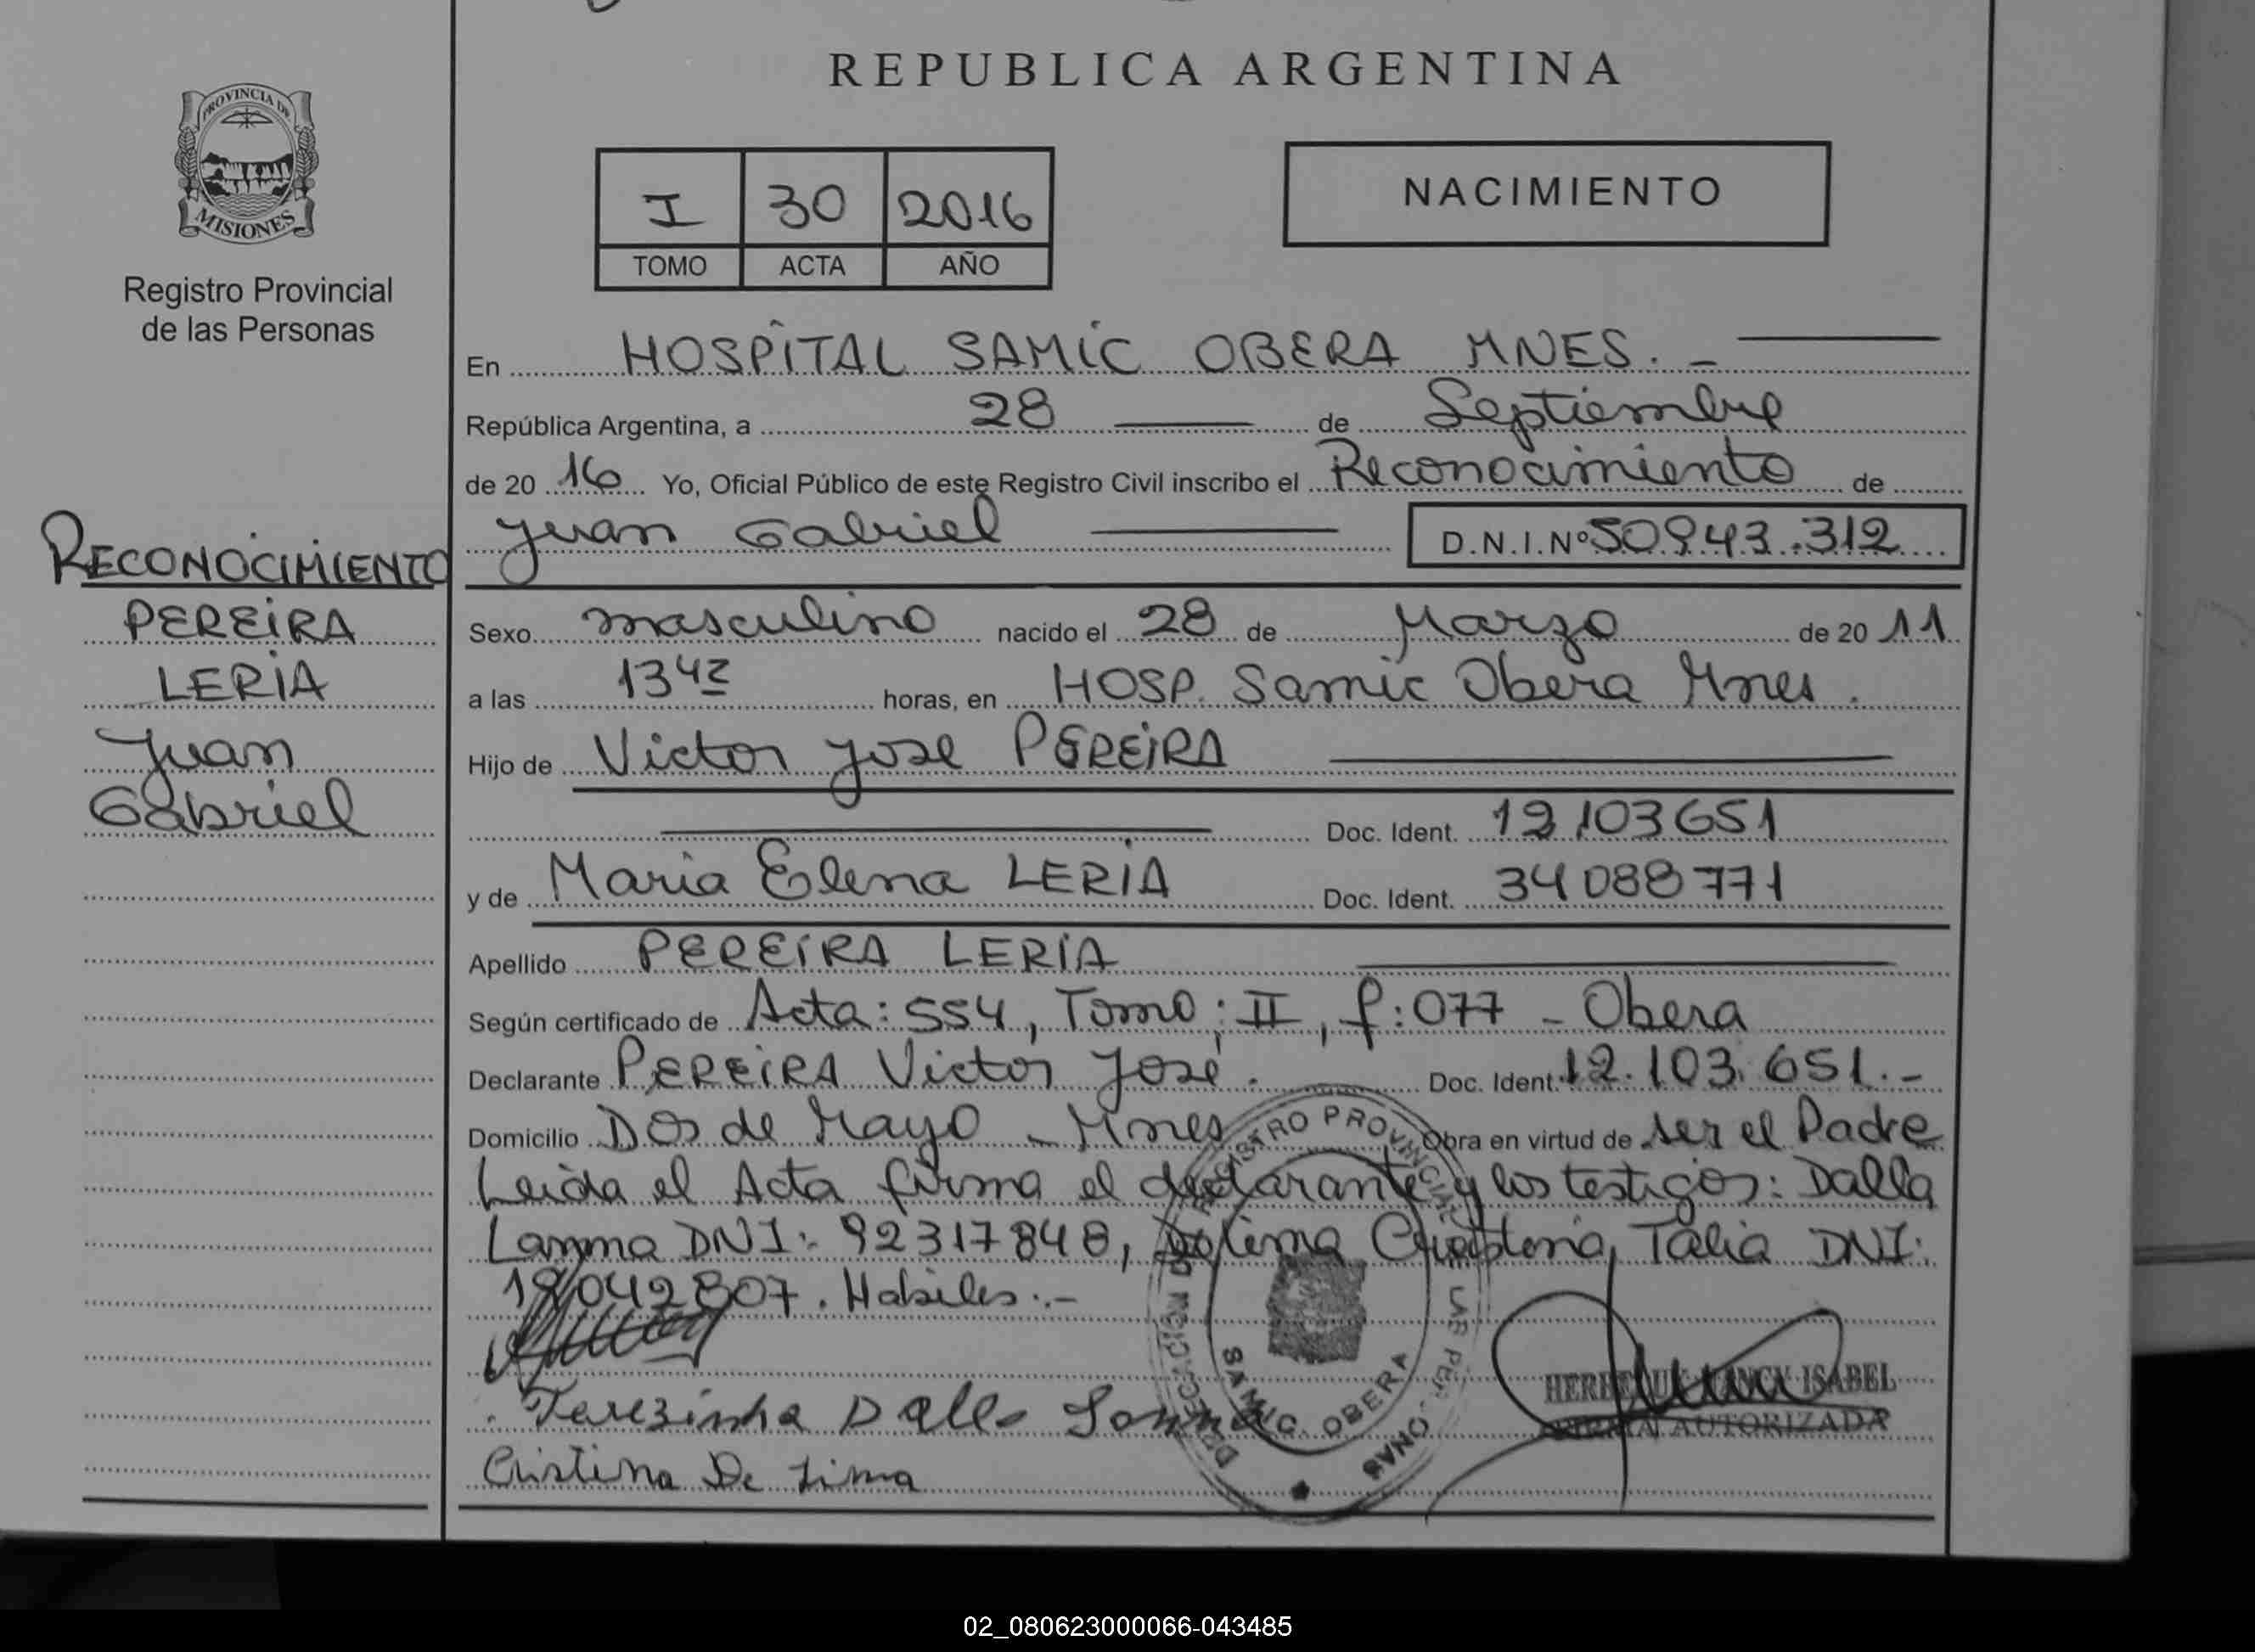 REPUBLICA ARGENTINA
PROVINCIA DE
MISIONES
Registro Provincial
de las Personas
I 30 2016
TOMO ACTA AÑO
NACIMIENTO
En HOSPITAL SAMIC OBERA MNES. -
República Argentina, a 28 de Septiembre
de 20 16 Yo, Oficial Público de este Registro Civil inscribo el Reconocimiento de
Juan Gabriel D.N.I.Nº 50.943.312
RECONOCIMIENTO
PEREIRA
LERIA
Juan
Gabriel
Sexo masculino nacido el 28 de Marzo de 20 11
a las 13 42 horas, en HOSP. Samic Obera Mnes.
Hijo de Victor Jose PEREIRA
Doc. Ident. 12103651
y de Maria Elena LERIA Doc. Ident. 34088771
Apellido PEREIRA LERIA
Según certificado de Acta: 554, Tomo: II, f: 077 - Obera
Declarante PEREIRA Victor José. Doc. Ident. 12.103.651.-
Domicilio Dos de Mayo - Mnes Obra en virtud de ser el Padre
Leida el Acta firma el declarante y los testigos: Dalla
Lamma DNI: 92317848, Cristina, Talia DNI:
18042807. Habiles.-
Terezinha Dalla
Cristina De Lima
REGISTRO PROVINCIAL DE LAS PERSONAS
SAMIC. OBERA
NANCY ISABEL
FIRMA AUTORIZADA
02_080623000066-043485